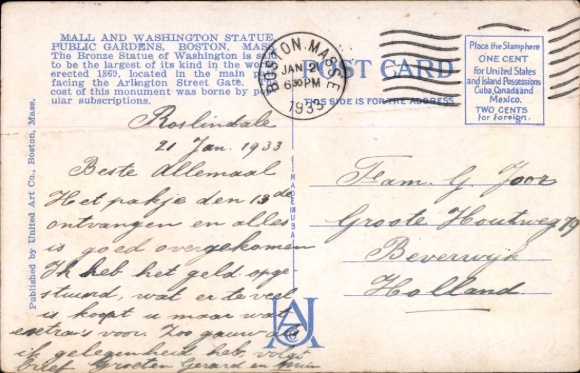 MALL AND WASHINGTON STATUE,
PUBLIC GARDENS, BOSTON, MASS.
The Bronze Statue of Washington is said
to be the largest of its kind in the world
erected 1869, located in the main path
facing the Arlington Street Gate. The
cost of this monument was borne by pop-
ular subscriptions.
BOSTON, MASS.
JAN 21
630 PM
1933
POST CARD
THIS SIDE IS FOR THE ADDRESS
Place the Stamp here
ONE CENT
for United States
and Island Possessions
Cuba, Canada and
Mexico.
TWO CENTS
for Foreign.
Published by United Art Co., Boston, Mass.
Roslindale
21 Jan. 1933
Beste Allemaal
Het pakje den 13de
ontvangen en alles
is goed overgekomen
Ik heb het geld opge-
stuurd, wat er te veel
is koopt u maar wat
extra's voor. Zoo gauw als
ik gelegenheid heb, volgt
brief Groeten Gerard en
MADE IN U.S.A.
Fam. G. Joor
Groote Houtweg 79
Beverwijk
Holland.